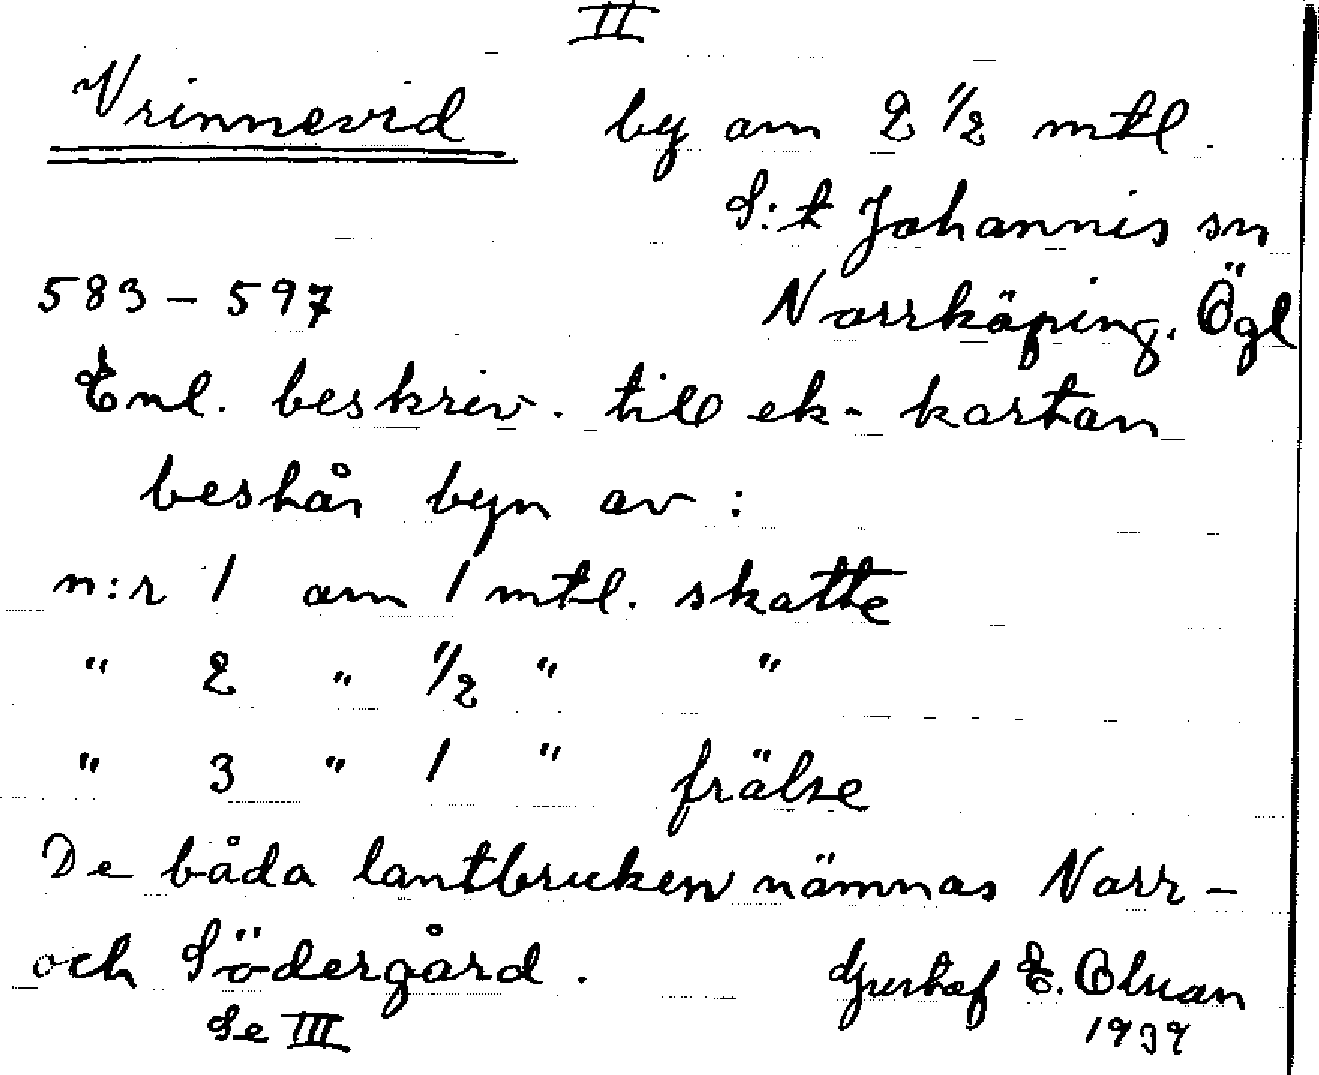 II
Vrinnevid by om 2 1/2 mtl.
S:t Johannis sn
583 – 597 Norrköping. Ögl
Enl. beskriv. till ek-kartan
består byn av :
n:r 1 om 1 mtl. skatte
" 2 " 1/2 " "
" 3 " 1 " frälse
De båda lantbruken nämnas Norr-
och Södergård. Gustaf E. Olsson
Se III 1939